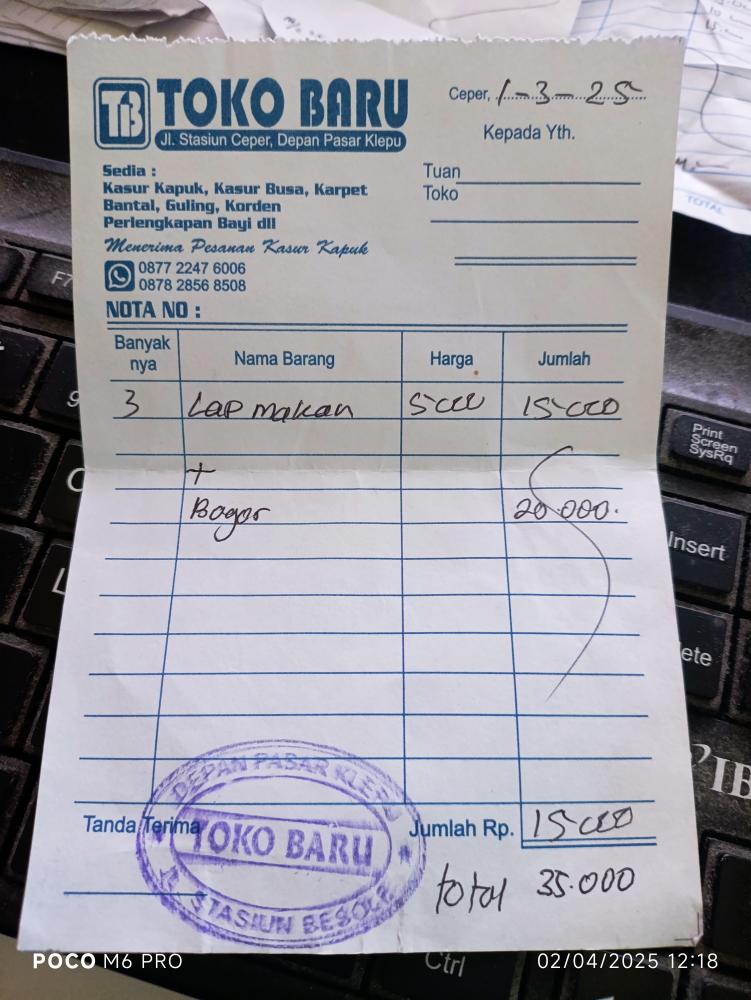 TB TOKO BARU
Jl. Stasiun Ceper, Depan Pasar Klepu
Ceper, 1-3-25
Kepada Yth.
Tuan
Toko
Sedia :
Kasur Kapuk, Kasur Busa, Karpet
Bantal, Guling, Korden
Perlengkapan Bayi dll
Menerima Pesanan Kasur Kapuk
0877 2247 6006
0878 2856 8508
NOTA NO :
Banyak nya Nama Barang Harga Jumlah
3 Lap makan 5000 15000
+
Bagor 20.000.
Tanda Terima Jumlah Rp. 15000
total 35.000
DEPAN PASAR KLEPU
TOKO BARU
JL. STASIUN BESOLE
Print Screen SysRq
Insert
Ctrl
TOTAL
POCO M6 PRO
02/04/2025 12:18